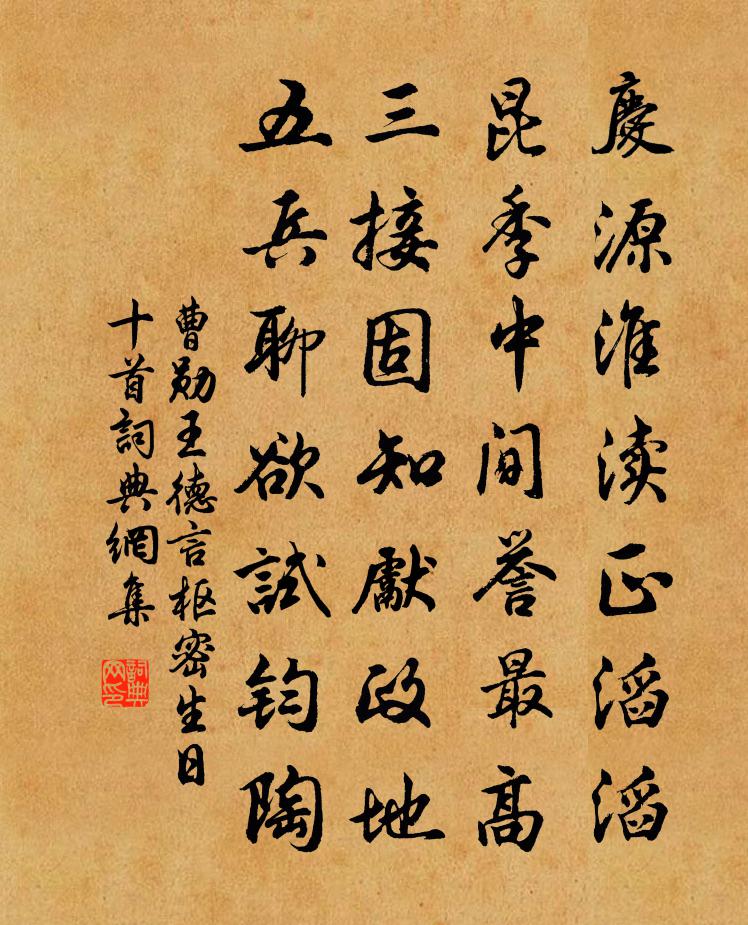 慶源淮渎正滔滔
昆季中间誉最高
三接固知獻政地
五兵聊欲試钧陶
曹勋王德言枢密生日
十首詞典網集
詞典网印